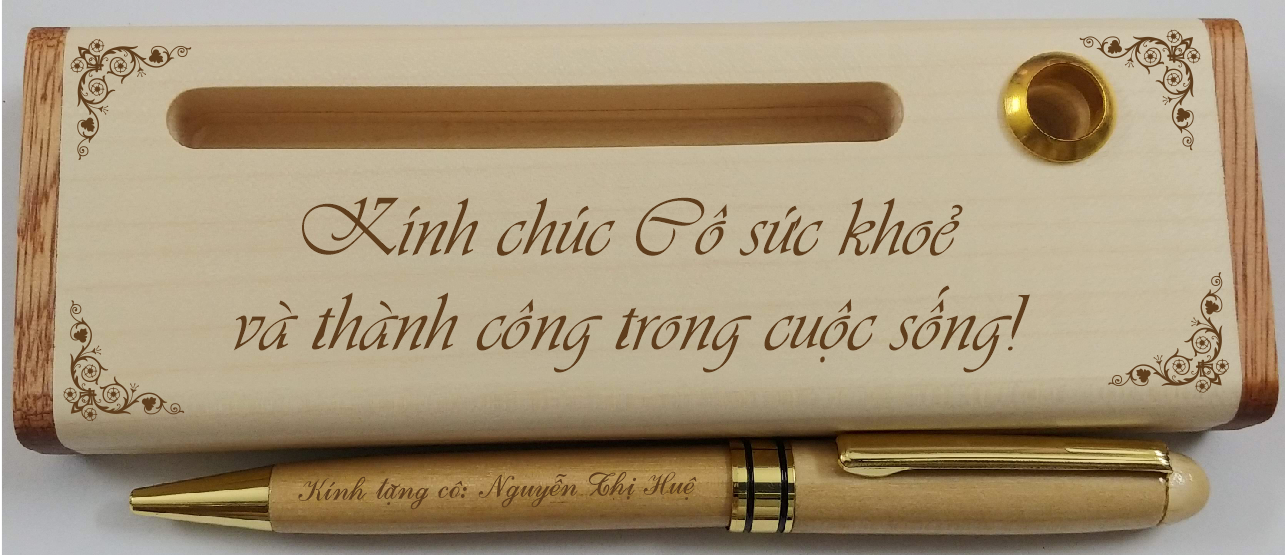 Kính chúc Cô sức khoẻ
và thành công trong cuộc sống!
Kính tặng cô: Nguyễn Thị Huệ